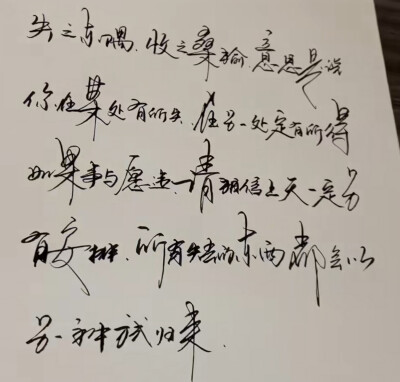 失之东隅,收之桑榆,意思是说
你在某处有所失,在另一处定有所得
如果事与愿违,请相信上天一定另
有安排,所有失去的东西都会以
另一种方式归来.